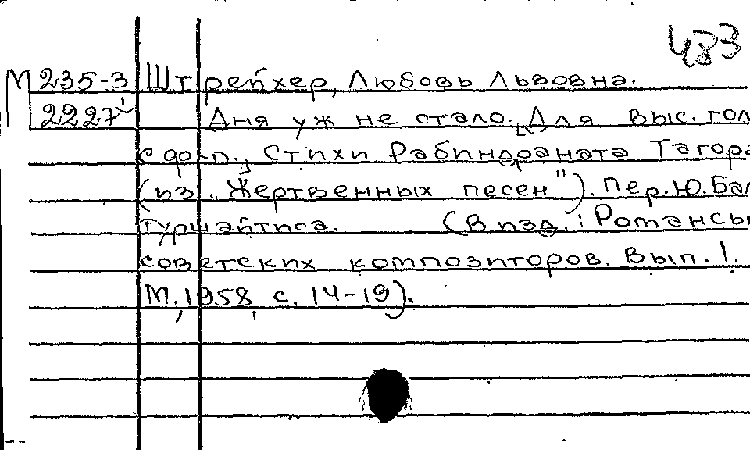 483
М 235-3 Штрейхер, Любовь Львовна.
2227 Дня уж не стало. [Для выс. гол
с ф-п., Стихи Рабиндраната Тагора
(из „Жертвенных песен"). Пер. Ю. Бал
трушайтиса. (В изд.: Романсы
советских композиторов. Вып. 1.
М., 1958, с. 14-19).